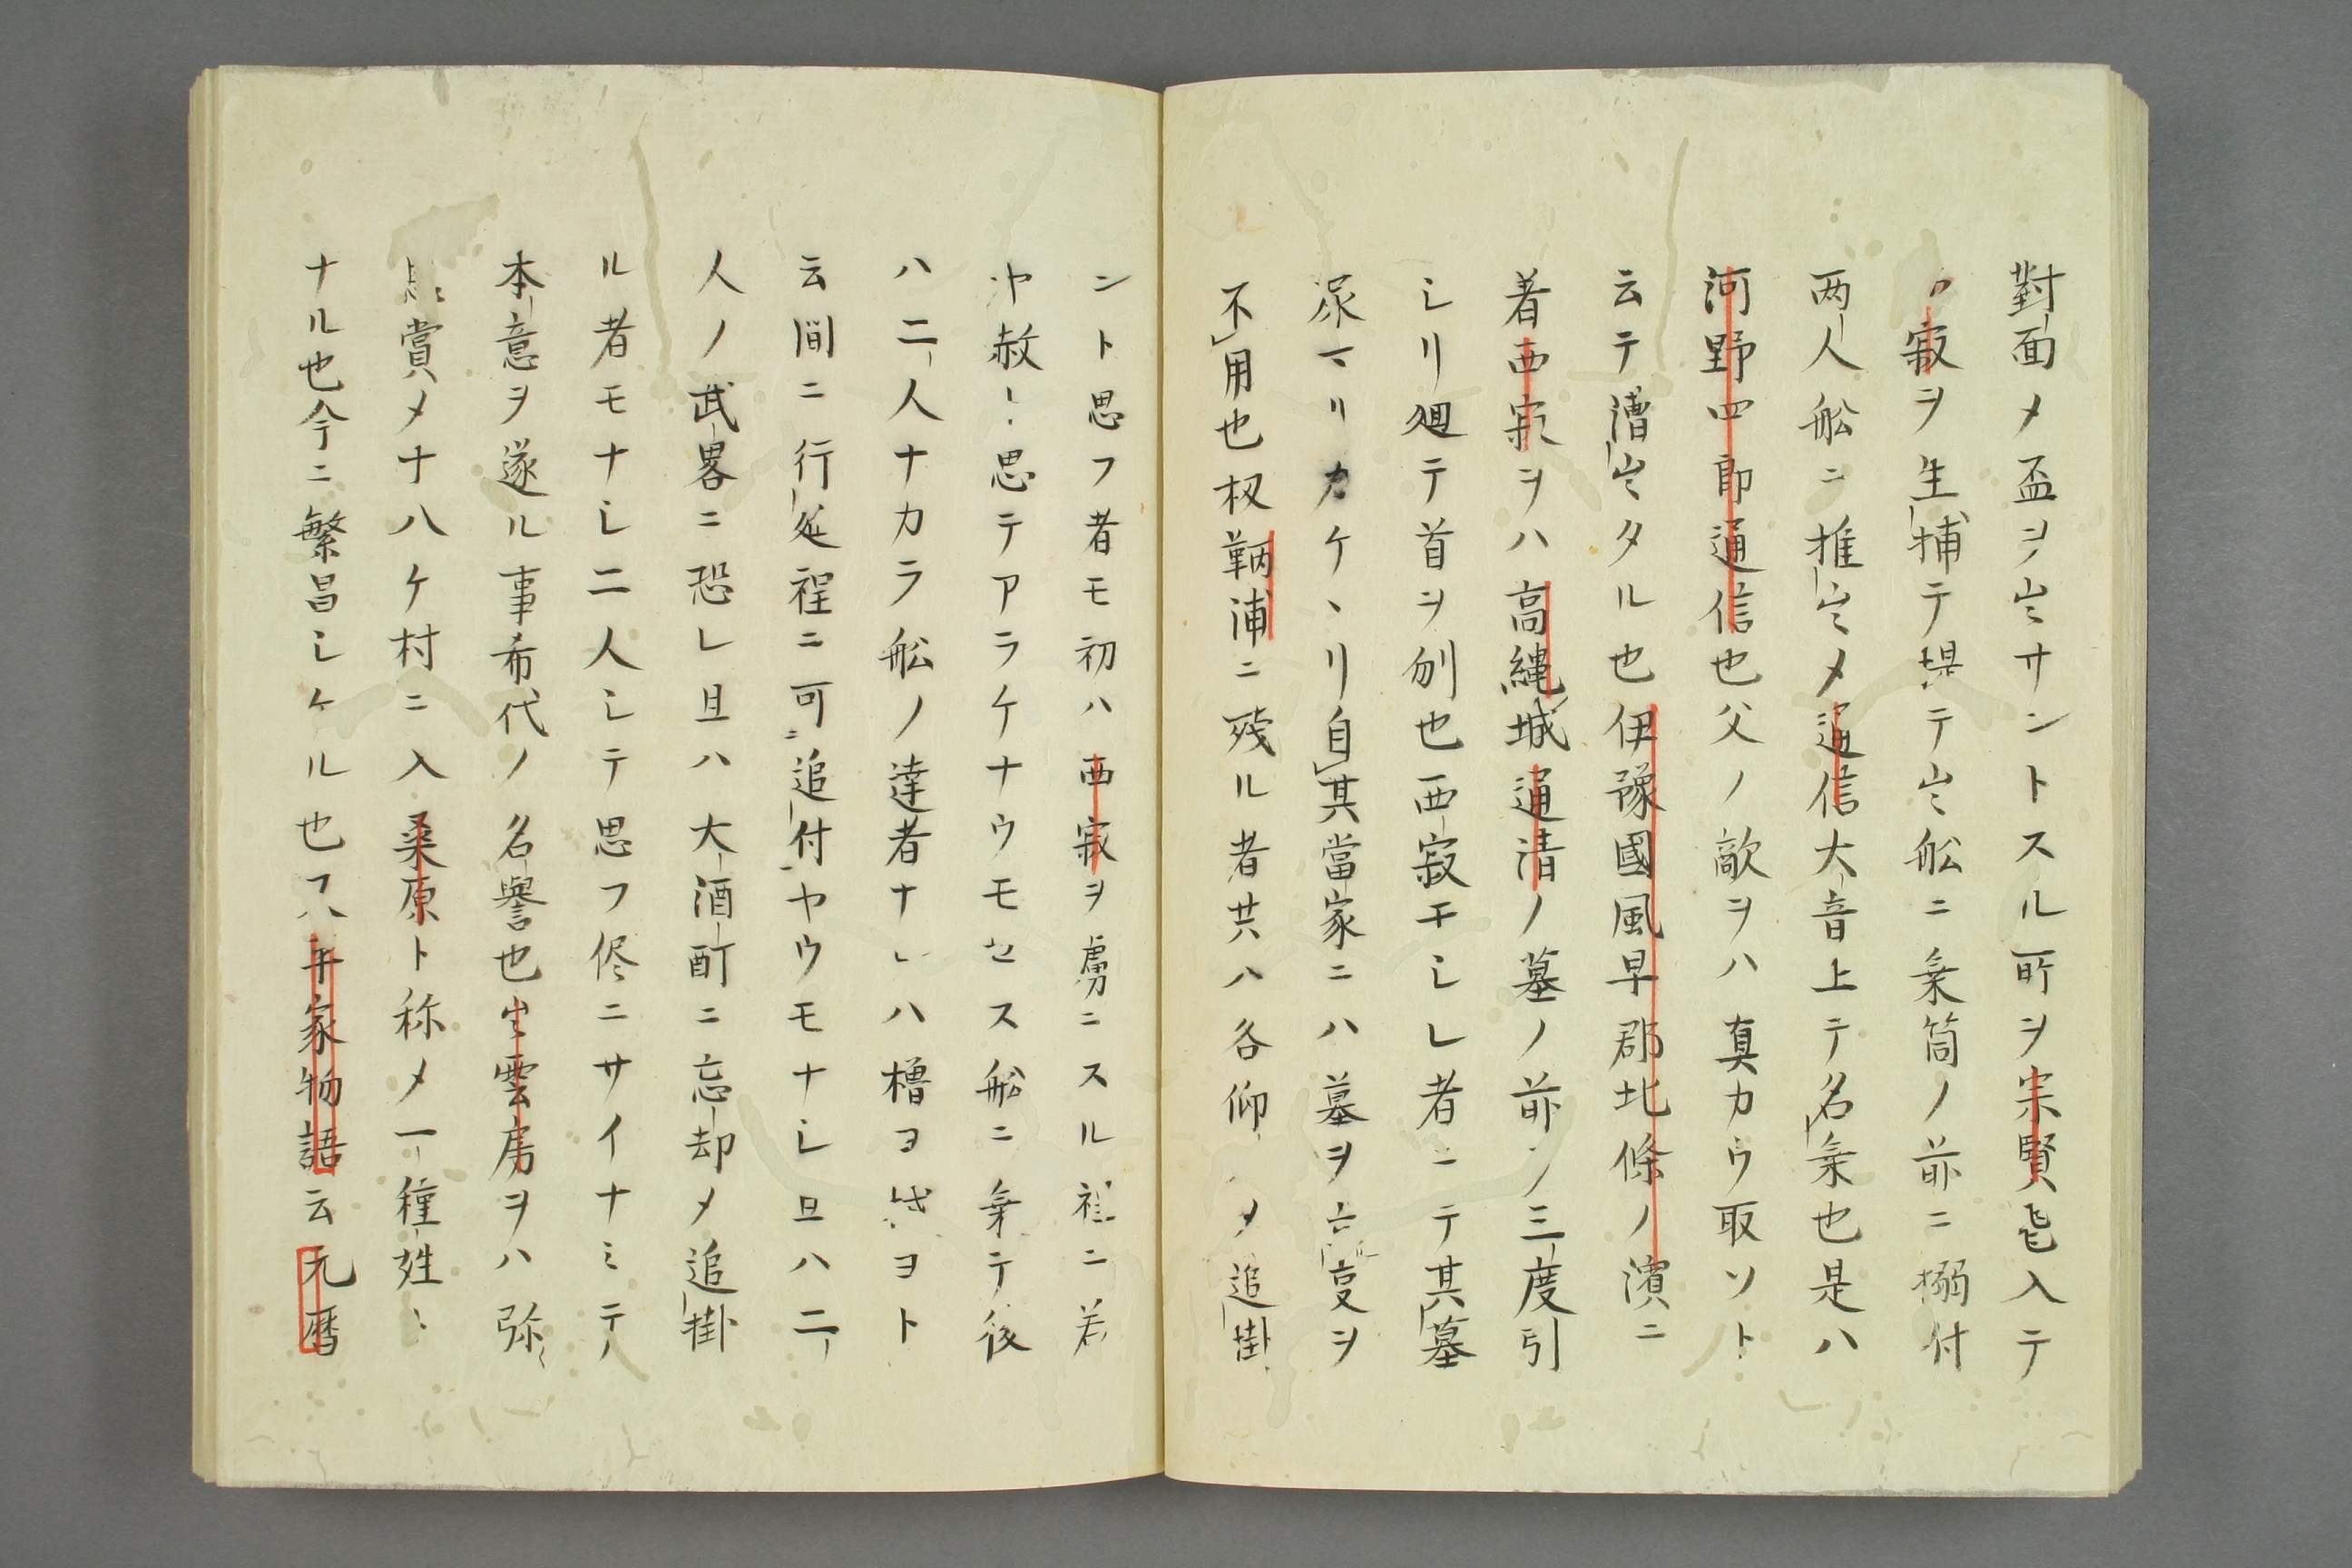 對面メ盃ヲ出サントスル所ヲ宗賢走入テ
寂ヲ生捕テ提テ出船ニ乗筒ノ前ニ搦付
両人船ニ推出メ通信大音上テ名乗也是ハ
河野四郎通信也父ノ敵ヲハ真カウ取ソト
云テ漕出タル也伊豫國風早郡北條ノ濱ニ
着西寂ヲハ高縄城通清ノ墓ノ前ノ三度引
シリ廻テ首ヲ刎也西寂干シレ者ニテ其墓
尿マリカケヽリ自其當家ニハ墓ヲ六变ヲ
不用也扨鞆浦ニ残ル者共ハ各仰メ追掛
ント思フ者モ初ハ西寂ヲ虜ニスル程ニ若
ヤ赦ト思テアラケナウモセス船ニ乗テ後
ハ二人ナカラ船ノ達者ナレハ櫓ヨ帆ヨト
云間ニ行延程ニ可追付ヤウモナシ且ハ二
人ノ武畧ニ恐レ且ハ大酒酊ニ忘却メ追掛
ル者モナシ二人シテ思フ侭ニサイナミテ
本意ヲ遂ル事希代ノ名譽也出雲房ヲハ弥
賞メ十八ケ村ニ入桑原ト称メ一種姓
ナル也今ニ繁昌シケル也又平家物語云元暦